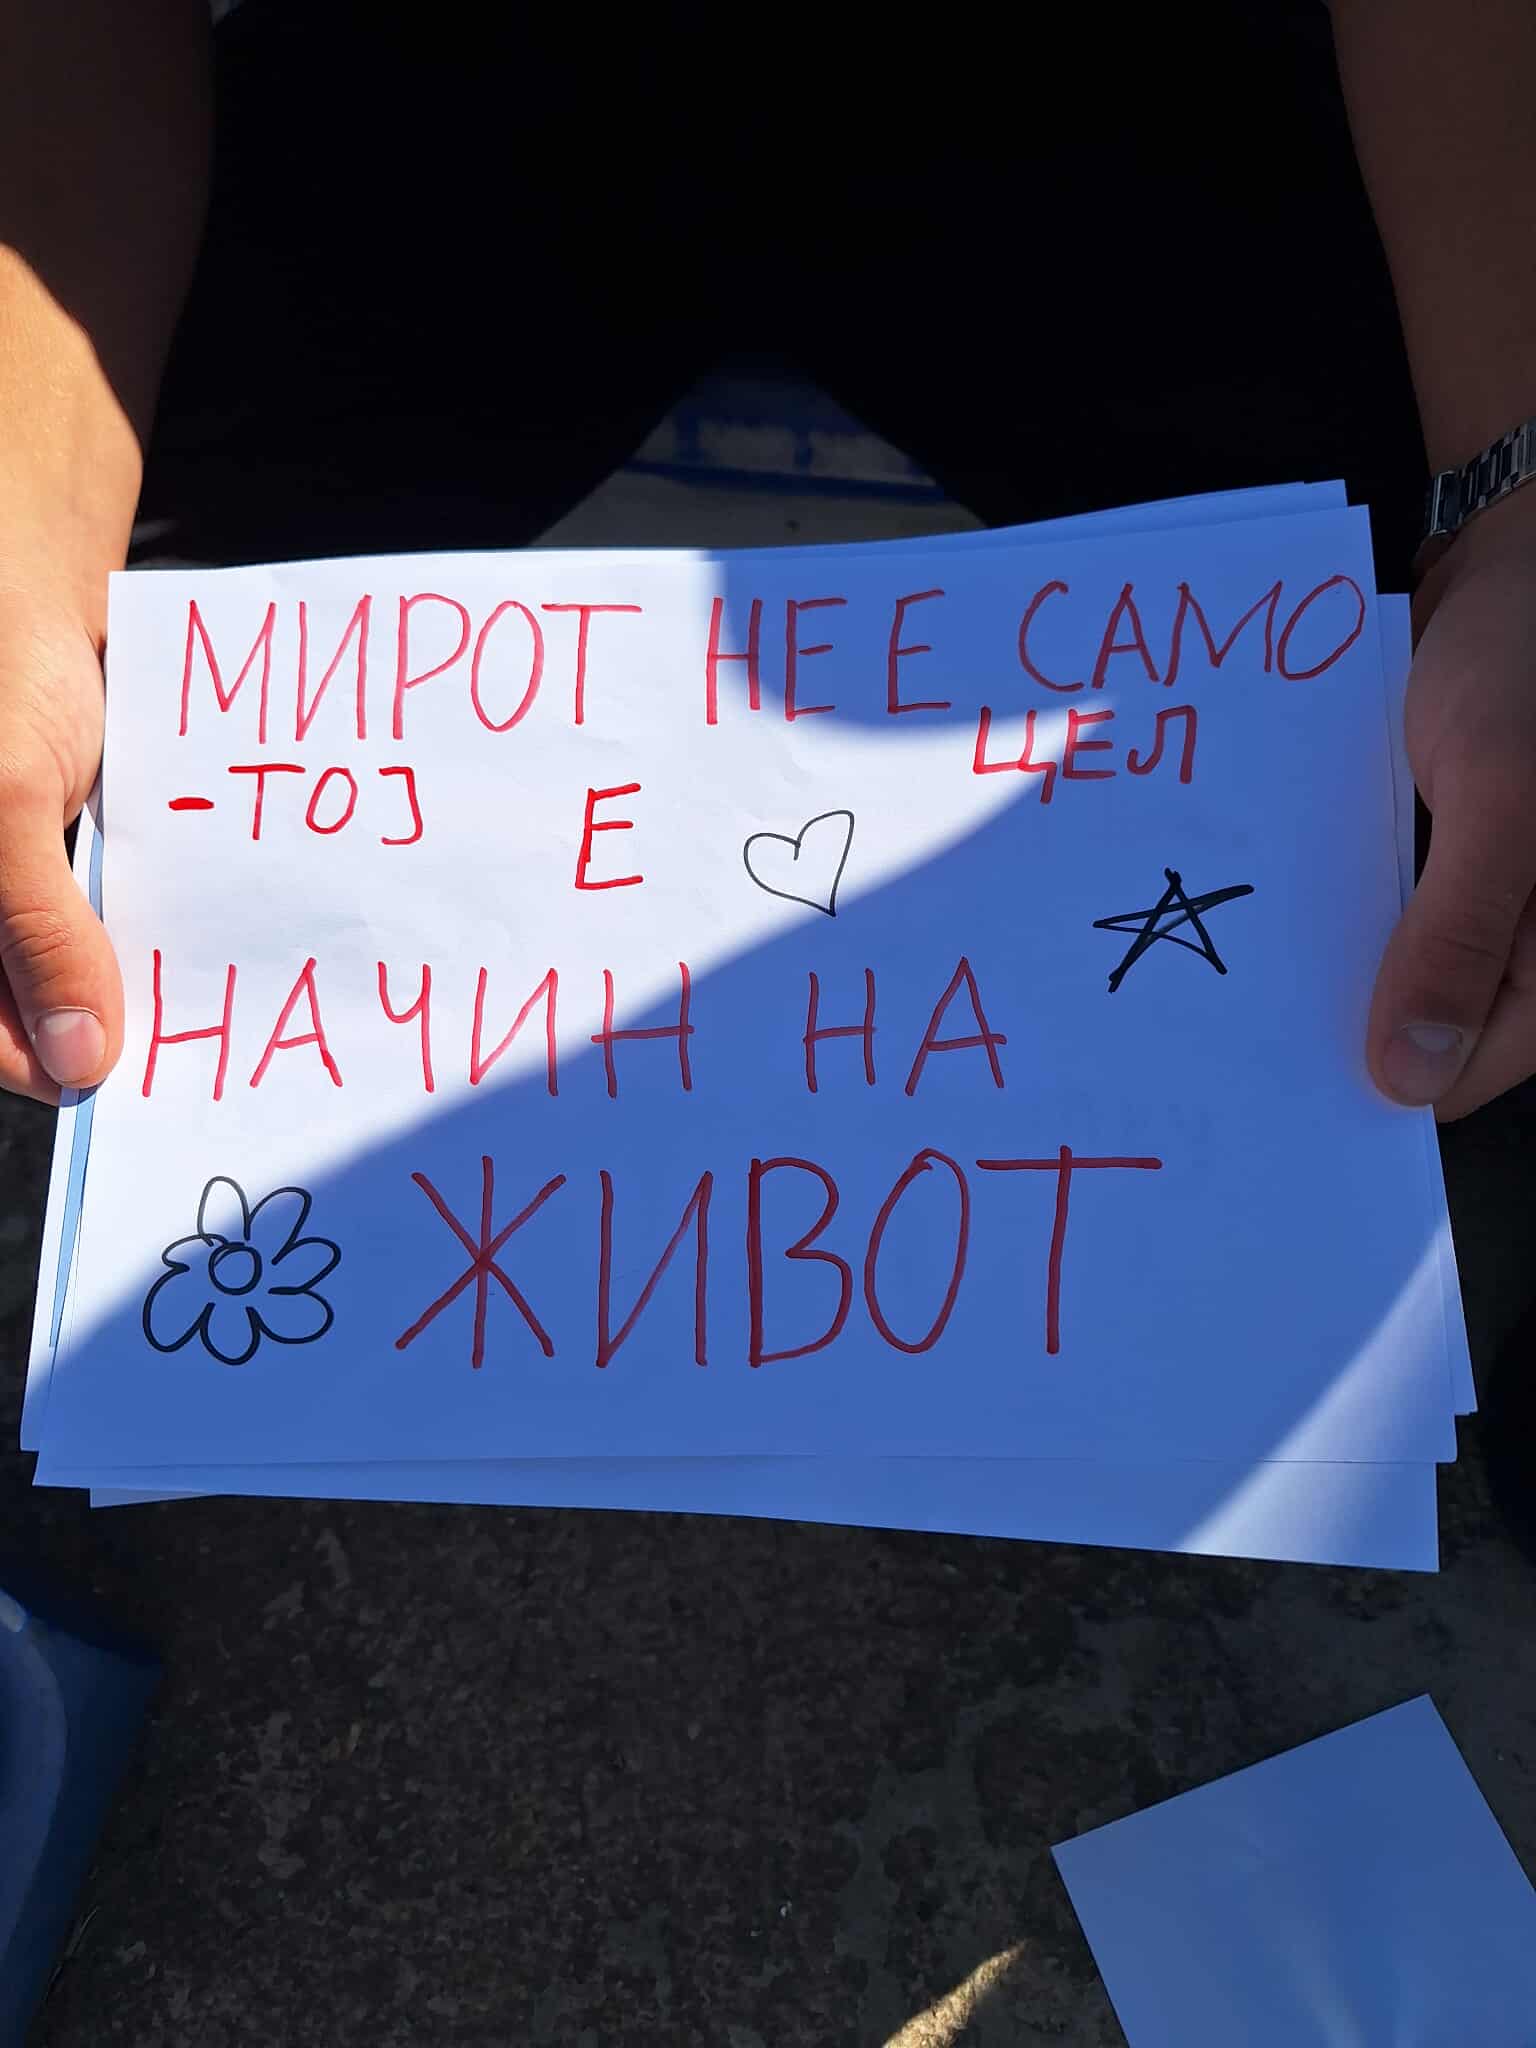 МИРОТ НЕ Е САМО
ЦЕЛ
-ТОЈ Е
НАЧИН НА
ЖИВОТ